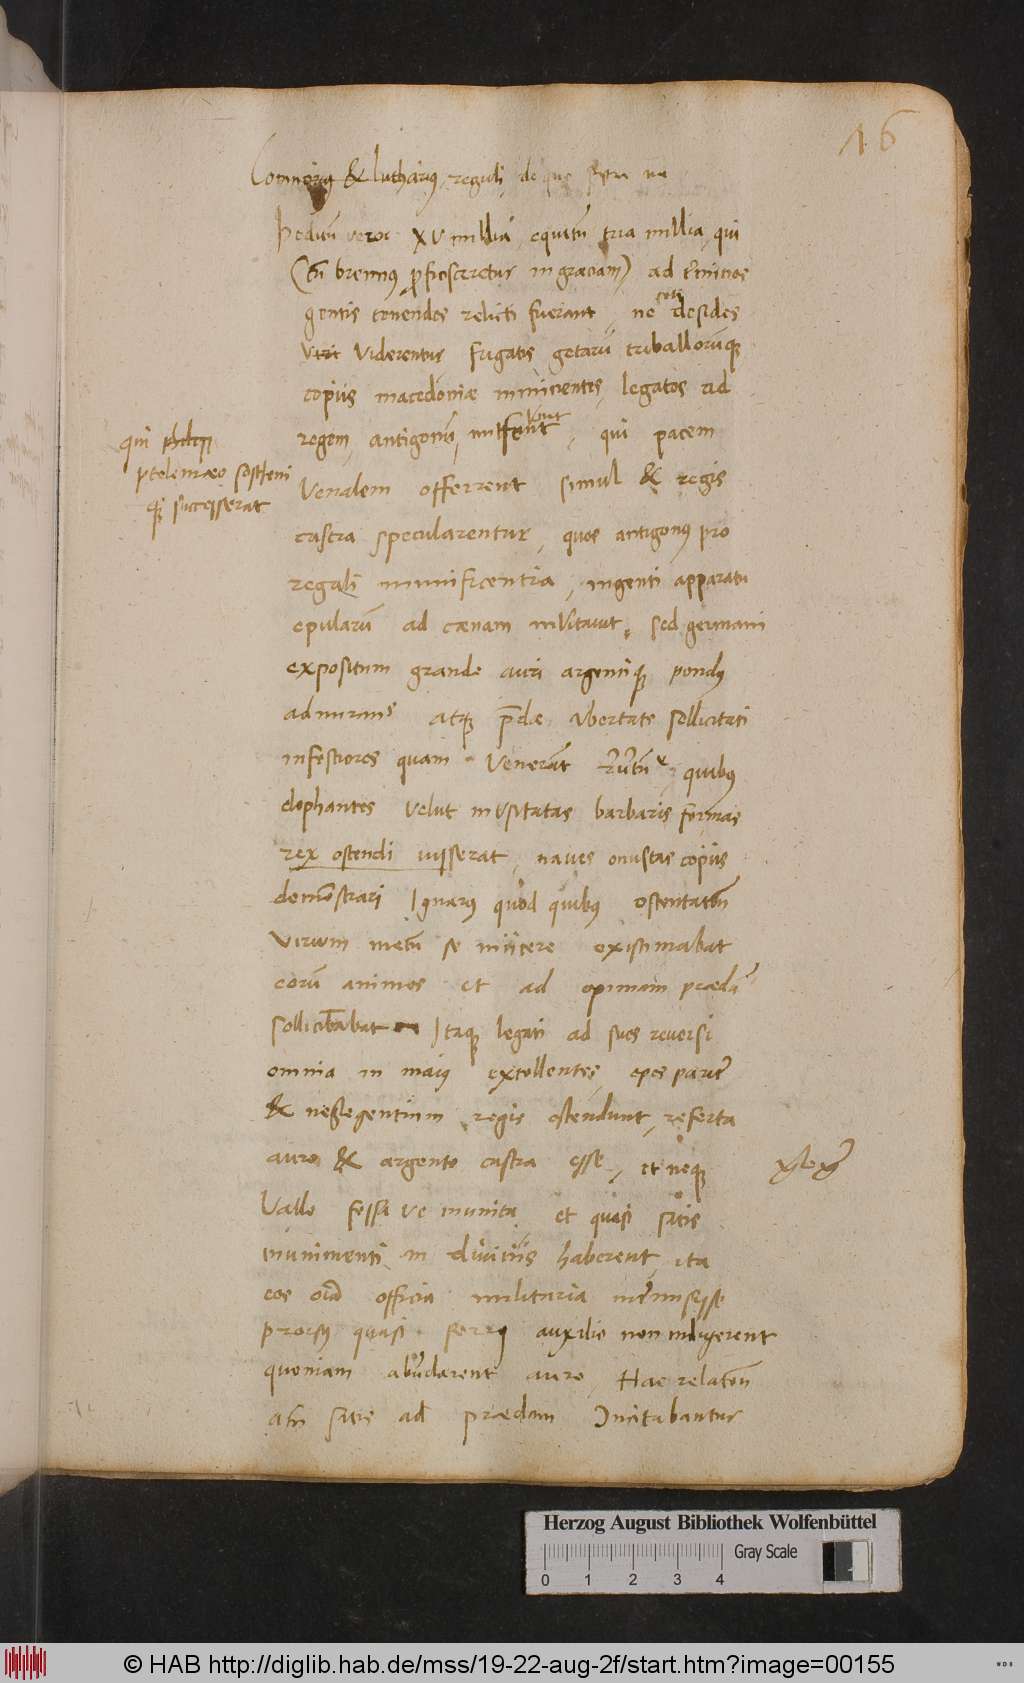 16
Lomnorius & lutharius, reguli, de quo supra
Peditum vero XV millia, equitum tria millia, qui
(cũ brennus ꝓficisceretur in graeciam) ad tẽminos
gentis tenendos relicti fuerant, ne soli desides
viri viderentur frigatis getarũ triballorumque
copiis macedoniae imminentes, legatos ad
regem, antigonũ, mittunt, qui pacem
qui
ptolemaeo sostheni
que successerat
Venalem offerrent simul & regis
castra specularentur, quos antigonus pro
regali munificentia, ingenti apparatu
epularũ ad caenam invitavit, sed germani
expositum grande auri argentique pondus
admirans atque p̃dae ubertate sollicitati
infestiores quam Venerãt, quibus
elephantes velut inusitatas barbaris formas
rex ostendi iusserat, naves onustas copiis
demonstrari Ignarus quod quibus ostentatõm
virium metũ se iniicere existimabat
eorũ animos et ad opimam praedã
sollicitabat Itaque legati ad suos reversi
omnia in maius extollentes, opes pariter
& neglegentium regis ostendunt, referta
auro & argento castra esse, et neque
Vallo fossa ve munita et quasi satis
munimenti in divitiis haberent, ita
eos oĩa officia militaria intermisisse
prorsus quasi ferri auxilio non indigerent
quoniam abũdarent auro, Hac relatõn
satis ad praedam Incitabantur
Herzog August Bibliothek Wolfenbüttel
Gray Scale
0 1 2 3 4
© HAB http://diglib.hab.de/mss/19-22-aug-2f/start.htm?image=00155